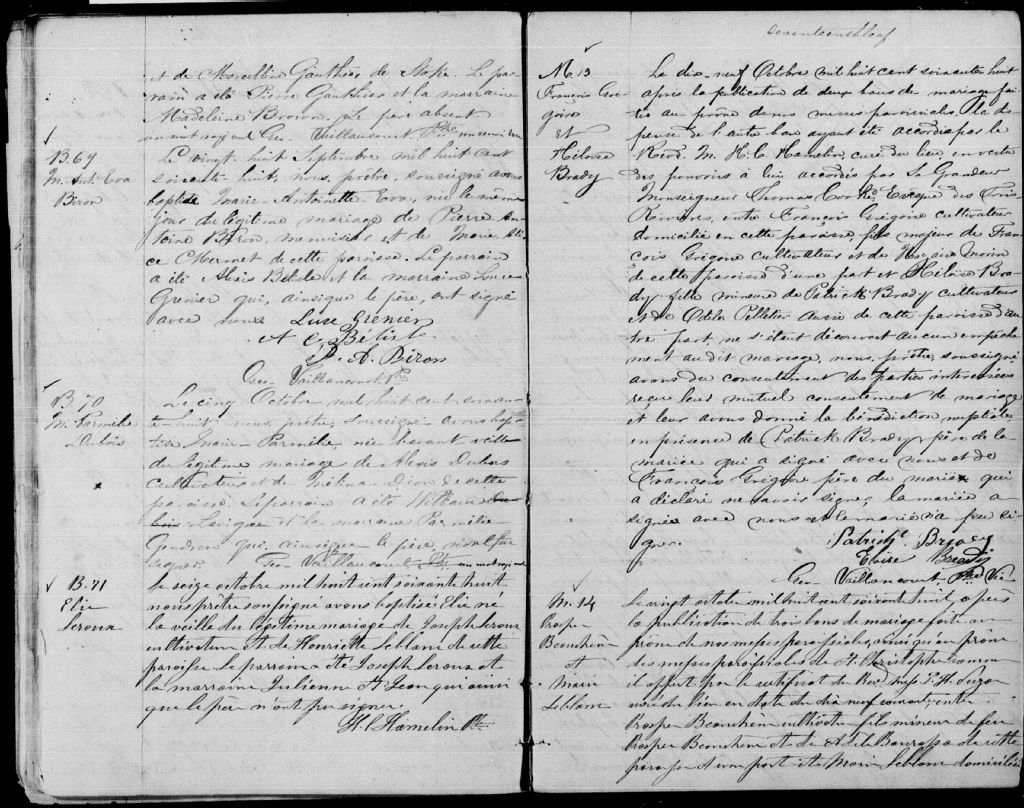 et de Marcelline Gauthier de Stoke. Le par-
rain a été Pierre Gauthier et la marraine
Madeleine Brown. Le père absent
un mot rayé nul Geo. Vaillancourt Ptre
B. 69
M. Ant. Eva
Biron
Le vingt huit Septembre mil huit cent
soixante huit, nous, prêtre, soussigné avons
baptisé Marie-Antoinette Eva, née le même
jour du légitime mariage de Pierre An-
toine Biron, menuisier et de Marie Ali-
ce Mermet de cette paroisse. Le parrain
a été Alexis Belisle et la marraine Luce
Grenier qui, ainsi que le père, ont signé
avec nous. Luce Grenier
A C Belisle
P. A. Biron
Geo. Vaillancourt Ptre
B. 70
M. Parmélie
Dubois
Le cinq Octobre mil huit cent soixan-
te-huit, nous, prêtre, soussigné avons bap-
tisé Marie-Parmélie née l'avant veille
du légitime mariage de Alexis Dubois
cultivateur et de Dion de cette
paroisse. Le parrain a été William
Lavigne et la marraine Parmélie
Gendron qui, ainsi que le père, n'ont su
signer. Geo. Vaillancourt Ptre un mot rayé nul
B. 71
Elie
Leroux
Le seize octobre mil huit cent soixante huit
nous prêtre soussigné avons baptisé Elie né
la veille du légitime mariage de Joseph Leroux
cultivateur et de Henriette Leblanc de cette
paroisse le parrain a été Joseph Leroux et
la marraine Julienne St Jean qui ainsi
que le père n'ont pu signer.
H. C. Hamelin Ptre
seventeenth leaf
M. 13
François Gré-
goire
Et
Héloise
Brady
Le dix-neuf Octobre mil huit cent soixante huit
après la publication de deux bans de mariage fai-
tes au prône de nos messes paroissiales, la dis-
pense de l'autre ban ayant été accordée par le
Révd. M. H. C. Hamelin, curé du lieu, en vertu
des pouvoirs à lui accordés par Sa Grandeur
Monseigneur Thomas Cooke, Evêque des Trois
Rivières, entre François Grégoire cultivateur
domicilié en cette paroisse, fils majeur de Fran-
çois Grégoire cultivateur et de Morin
de cette paroisse d'une part et Héloise Bra-
dy fille mineure de Patrick Brady cultivateur
et de Odile Pelletier aussi de cette paroisse d'au-
tre part, ne s'étant découvert aucun empêche-
ment au dit mariage, nous, prêtre, soussigné,
avons du consentement des parties intéressées
reçu leur mutuel consentement de mariage
et leur avons donné la bénédiction nuptiale
en présence de Patrick Brady père de la
mariée qui a signé avec nous et de
François Grégoire père du marié qui
a déclaré ne savoir signer, la mariée a
signée avec nous et le marié n'a pu si-
gner. Patrick Brady
Eloise Brady
Geo. Vaillancourt, Ptre Vic
M. 14
Prosper
Beauchêne
et
Marie
Leblanc
Le vingt octobre mil huit cent soixante huit, après
la publication de trois bans de mariage faite au
prône de nos messes paroissiales, ainsi qu'au prône
des messes paroissiales de St. Christophe comme
il appert par le certificat du Rev. Mess. P. H. Suzor
curé du lieu en date du dix neuf courant entre
Prosper Beauchêne cultivateur fils mineur de feu
Prosper Beauchêne et de Adèle Bourassa de cette
paroisse d'une part et de Marie Leblanc domiciliée